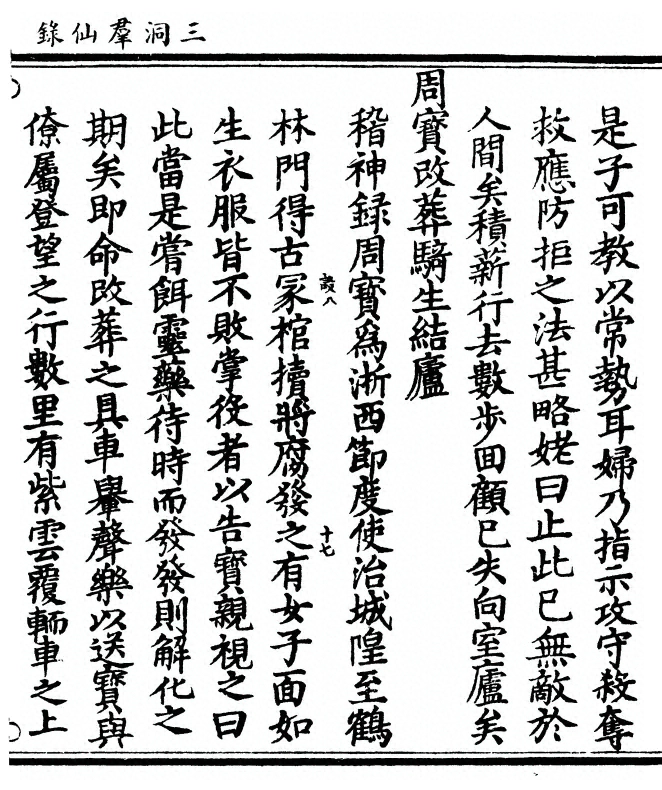 三洞羣仙錄
是子可教以常勢耳婦乃指示攻守殺奪
救應防拒之法甚略姥曰止此已無敵於
人間矣積薪行去數步回顧已失向室廬矣
周寶改葬騎生結廬
稽神録周寶爲浙西節度使治城隍至鶴
林門得古冢棺櫝將腐發之有女子面如
設八
十七
生衣服皆不敗掌役者以告寶親視之曰
此當是嘗餌靈藥待時而發發則解化之
期矣即命改葬之具車轝聲樂以送寶與
僚屬登望之行數里有紫雲覆輀車之上